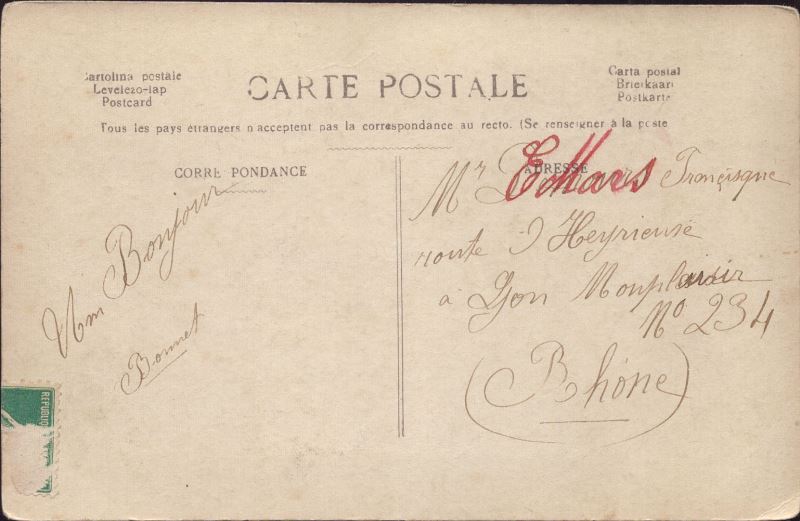 Cartolina postale
Levelezo-lap
Postcard
CARTE POSTALE
Carta postal
Briefkaart
Postkarte
Tous les pays étrangers n'acceptent pas la correspondance au recto. (Se renseigner à la poste
CORRE PONDANCE
ADRESSE
Un Bonjour
Bonnet
Mr Françisque
route d'Heyrieuse
à Lyon Monplaisir
No 234
(Rhône)
REPUBLIQ